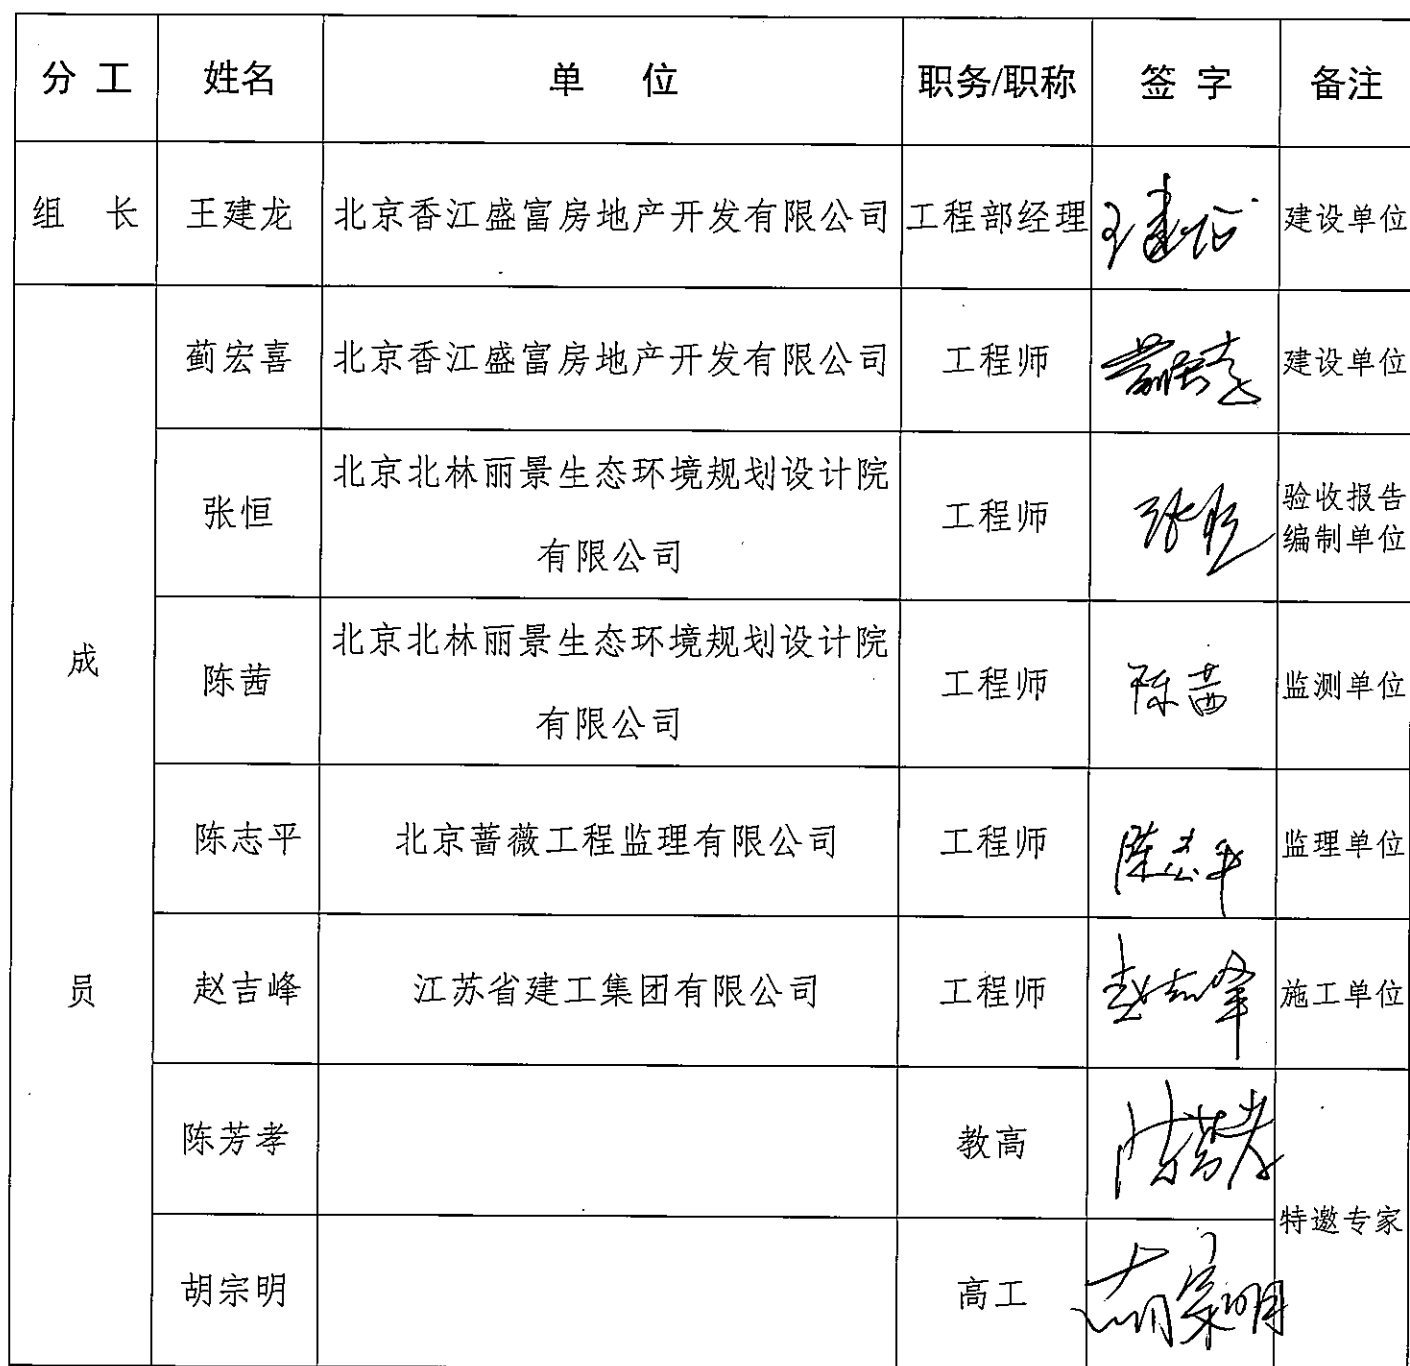 分 工 姓名 单 位 职务/职称 签 字 备注
组 长 王建龙 北京香江盛富房地产开发有限公司 工程部经理 王建龙 建设单位
蓟宏喜 北京香江盛富房地产开发有限公司 工程师 蓟宏喜 建设单位
张恒 北京北林丽景生态环境规划设计院
有限公司 工程师 张恒 验收报告
编制单位
成
陈茜 北京北林丽景生态环境规划设计院
有限公司 工程师 陈茜 监测单位
陈志平 北京蔷薇工程监理有限公司 工程师 陈志平 监理单位
员
赵吉峰 江苏省建工集团有限公司 工程师 赵吉峰 施工单位
陈芳孝 教高 陈芳孝
特邀专家
胡宗明 高工 胡宗明